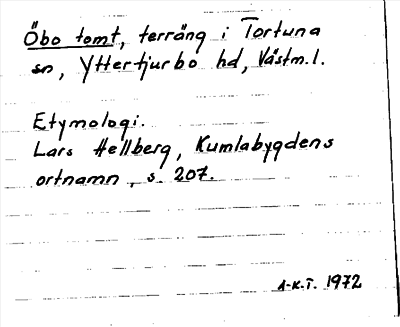 Öbo tomt, terräng i Tortuna
sn, Yttertjurbo hd, Västm.l.
Etymologi.
Lars Hellberg, Kumlabygdens
ortnamn, s. 207.
A-K.T. 1972